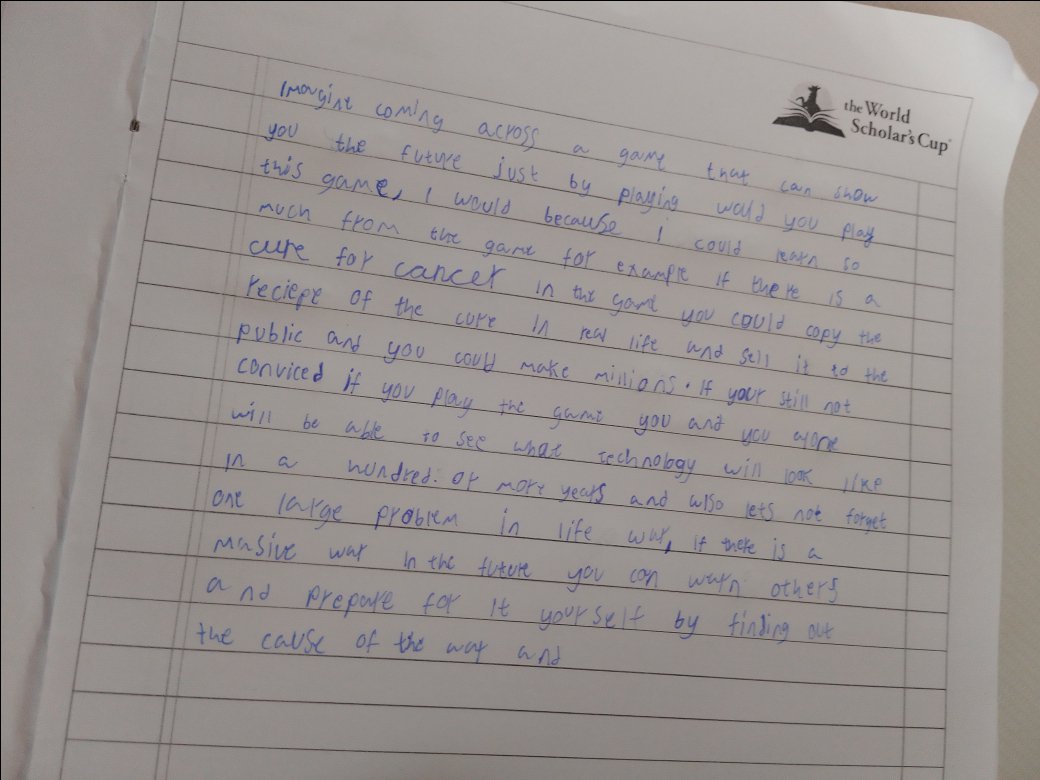 the World
Scholar's Cup
Imagine coming across a game that can show
you the future just by playing would you play
this game, I would because I could learn so
much from the game for example if there is a
cure for cancer in the game you could copy the
reciepe of the cure in real life and sell it to the
public and you could make millions. If your still not
conviced if you play the game you and you alone
will be able to see what technology will look like
in a hundred. or more years and also lets not forget
one large problem in life war, if there is a
massive war in the future you can warn others
and prepare for it yourself by finding out
the cause of the war and